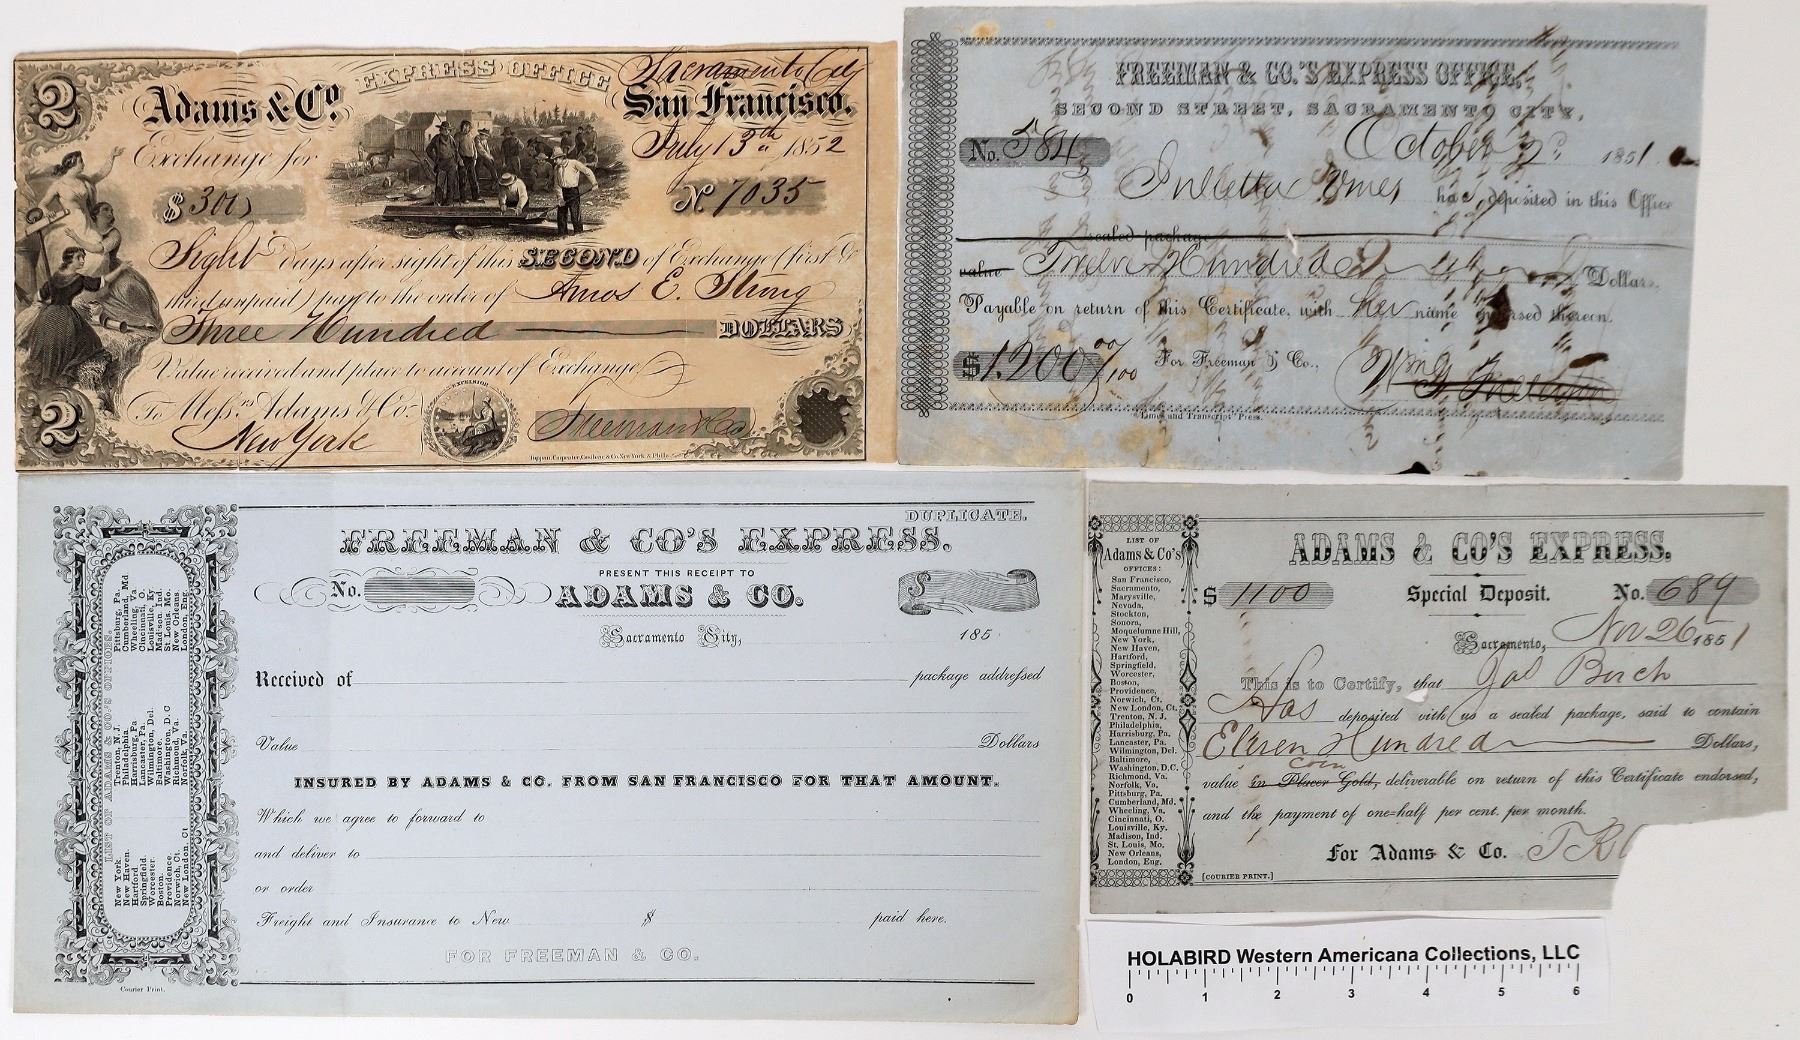 2
EXPRESS OFFICE
Sacramento City
Adams & Co.
San Francisco.
July 13th 1852
Exchange for
$ 300
No. 7035
Sight days after sight of this SECOND of Exchange (first &
third unpaid) pay to the order of Amos E. Strong
Three Hundred DOLLARS
Value received and place to account of Exchange
To Messrs Adams & Co.
New York
2
EXCELSIOR
Freeman & Co
Toppan, Carpenter, Casilear & Co. New York & Phila.
FREEMAN & CO.'S EXPRESS OFFICE,
SECOND STREET, SACRAMENTO CITY,
No. 584
October 1851.
has deposited in this Office
sealed package
value Twelve Hundred Dollars,
Payable on return of this Certificate, with her name endorsed thereon.
$ 1.200 00/100
For Freeman & Co.,
Wm
Times and Transcript Press.
DUPLICATE.
FREEMAN & CO'S EXPRESS.
No.
PRESENT THIS RECEIPT TO
ADAMS & CO.
$
Sacramento City, 185
Received of package addressed
Value Dollars
INSURED BY ADAMS & CO. FROM SAN FRANCISCO FOR THAT AMOUNT.
Which we agree to forward to
and deliver to
or order
Freight and Insurance to New $ paid here.
FOR FREEMAN & CO.
LIST OF ADAMS & CO'S OFFICES.
New York.
New Haven.
Hartford
Springfield.
Worcester.
Boston.
Providence.
Norwich, Ct.
New London, Ct
Trenton, N. J.
Philadelphia.
Harrisburg, Pa
Lancaster, Pa.
Wilmington, Del.
Baltimore.
Washington, D.C
Richmond, Va.
Norfolk, Va.
Pittsburg, Pa.
Cumberland, Md.
Wheeling, Va.
Cincinnati, O.
Louisville, Ky
Madison, Ind.
St. Louis, Mo.
New Orleans.
London, Eng.
Courier Print.
LIST OF
Adams & Co's
OFFICES:
San Francisco,
Sacramento,
Marysville,
Nevada,
Stockton,
Sonora,
Moquelumne Hill,
New York,
New Haven,
Hartford,
Springfield,
Worcester,
Boston,
Providence,
Norwich, Ct.
New London, Ct.
Trenton, N. J.
Philadelphia,
Harrisburg, Pa.
Lancaster, Pa.
Wilmington, Del.
Baltimore,
Washington, D.C.
Richmond, Va.
Norfolk, Va.
Pittsburg, Pa.
Cumberland, Md.
Wheeling, Va.
Cincinnati, O.
Louisville, Ky.
Madison, Ind.
St. Louis, Mo.
New Orleans,
London, Eng.
ADAMS & CO'S EXPRESS.
$ 1100
Special Deposit.
No. 689
Sacramento, Nov 26 1851
This is to Certify, that Jas Birch
Has deposited with us a sealed package, said to contain
Eleven Hundred Dollars,
Coin
value in Placer Gold, deliverable on return of this Certificate endorsed,
and the payment of one-half per cent. per month.
For Adams & Co.
[COURIER PRINT.]
HOLABIRD Western Americana Collections, LLC
0 1 2 3 4 5 6